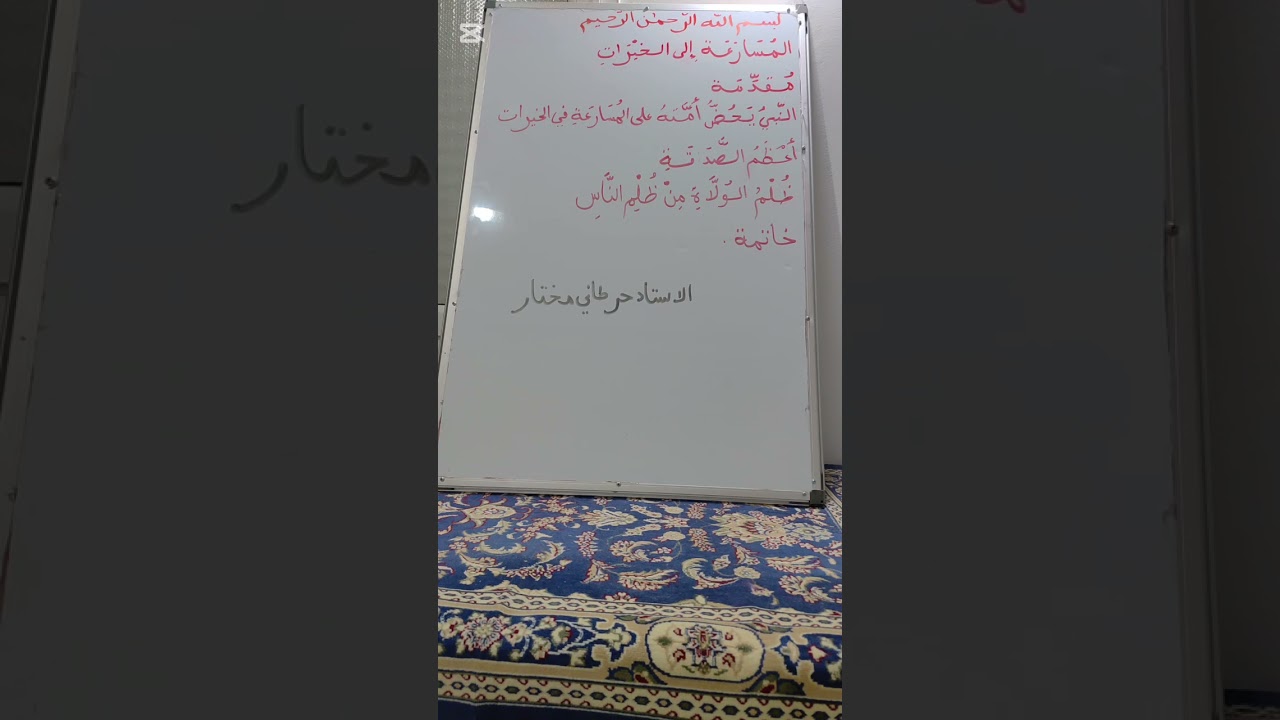 بسم الله الرّحمٰن الرّحيم
المُسَارَعَة إلى الخَيْرَاتِ
مُقدِّمَة
النَّبيُّ يَحُضُّ أُمَّتَهُ على المُسَارَعَةِ في الخيرات
أَعْظَمُ الصَّدَقَةِ
ظُلْمُ الوُلَاةِ مِنْ ظُلْمِ النَّاسِ
خاتمة .
الاستاد حرطاني مختار
مختار